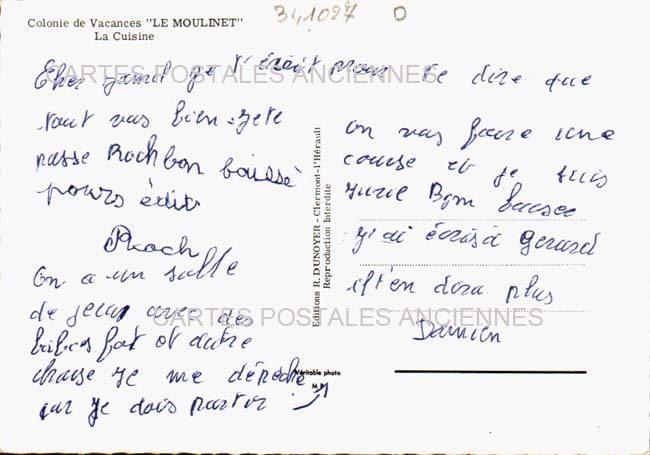 341087
Colonie de Vacances "LE MOULINET"
La Cuisine
Cher jamel je t'écrit pour te dire que
tout vas bien. je te
passe Roch bon baisse
pours édit
Roch
On a un salle
de jeux avec des
foot et autre
chose je me dépêche
car je dois partir
on vas faire une
course et je suis
Bon baisee
j'ai écrisà gerard
il t'en dira plus
Damien
Editions R. DUNOYER - Clermont-l'Hérault
Reproduction Interdite
Véritable photo
CARTES POSTALES ANCIENNES
CARTES POSTALES ANCIENNES